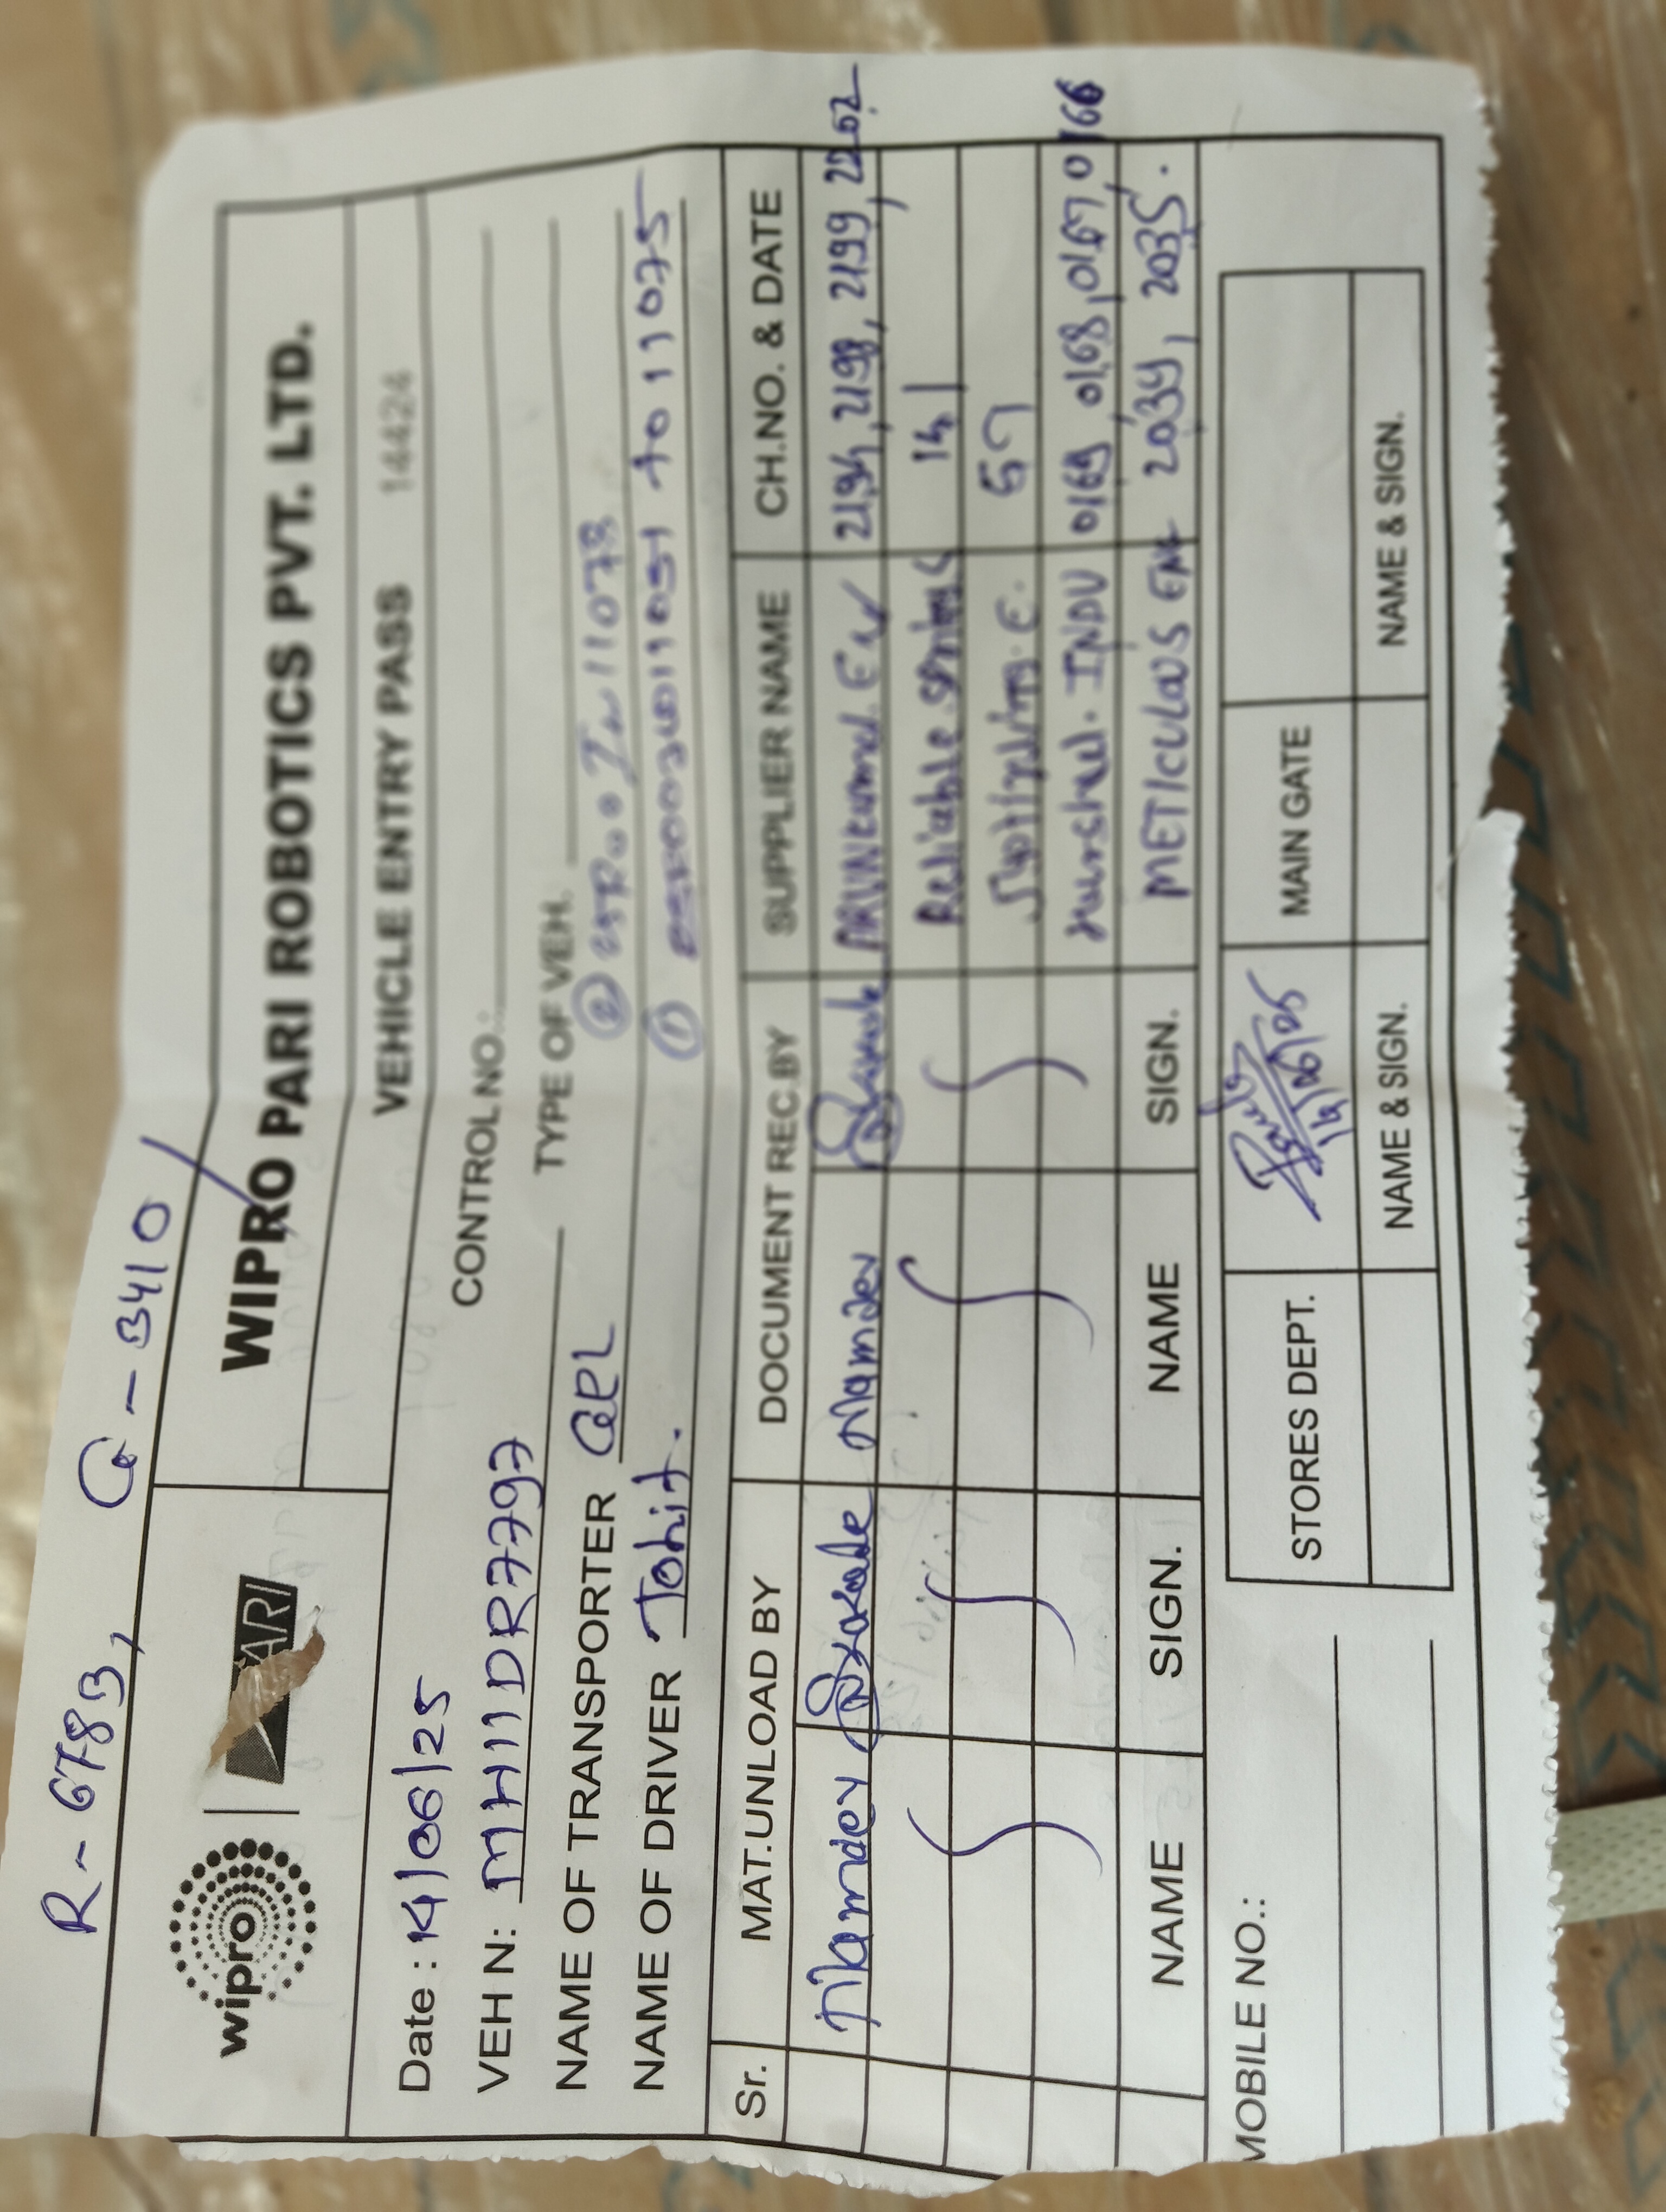 R - 6783, G - 3410
wipro PARI
WIPRO PARI ROBOTICS PVT. LTD.
VEHICLE ENTRY PASS 14424
Date : 14/06/25 CONTROL NO.:
VEH N: MH11DR7797 TYPE OF VEH.
NAME OF TRANSPORTER
NAME OF DRIVER
Sr. MAT.UNLOAD BY DOCUMENT REC.BY SUPPLIER NAME CH.NO. & DATE
Namdev Namdev 2194, 2198, 2199, 2202
Reliable springs 141
57
INDU 0169, 0168, 0167, 0166
METICULOUS ENG 2034, 2035.
NAME SIGN. NAME SIGN.
MOBILE NO.: STORES DEPT. 14/06/25 MAIN GATE
NAME & SIGN. NAME & SIGN.